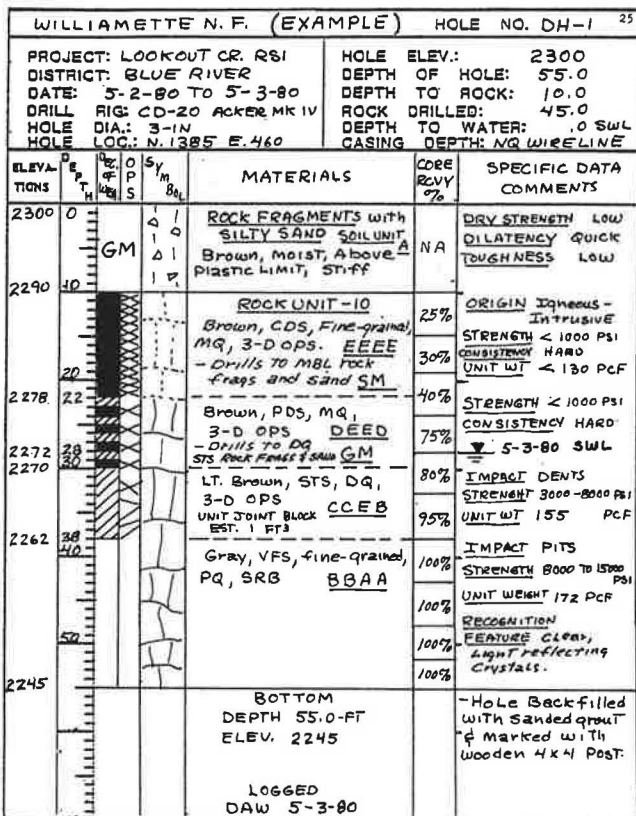 WILLIAMETTE N.F. (EXAMPLE) HOLE NO. DH-1 25
PROJECT: LOOKOUT CR. RSI
DISTRICT: BLUE RIVER
DATE: 5-2-80 TO 5-3-80
DRILL RIG: CD-20 ACKER MK IV
HOLE DIA.: 3-IN
HOLE LOC.: N.1385 E.460
HOLE ELEV.: 2300
DEPTH OF HOLE: 55.0
DEPTH TO ROCK: 10.0
ROCK DRILLED: 45.0
DEPTH TO WATER: .0 SWL
CASING DEPTH: NQ WIRELINE
ELEVA-
TIONS
DEPTH
OPS
SYMBOL
MATERIALS
CORE
RCVY
%
SPECIFIC DATA
COMMENTS
2300 0
GM
ROCK FRAGMENTS with
SILTY SAND SOIL UNIT
A
Brown, MOIST, Above
PLASTIC LIMIT, STIFF
NA
DRY STRENGTH LOW
DILATENCY QUICK
TOUGHNESS LOW
2290 10
ROCK UNIT-10
Brown, CDS, Fine-grained,
MQ, 3-D OPS. EEEE
- Drills TO MBL rock
frags and sand SM
25%
30%
ORIGIN Igneous-
Intrusive
STRENGTH < 1000 PSI
CONSISTENCY HARD
UNIT WT < 130 PCF
20
2278 22
Brown, PDS, MQ,
3-D OPS DEED
- Drills TO DQ
STS ROCK FRAGS & SAND GM
40%
75%
STRENGTH < 1000 PSI
CONSISTENCY HARD
5-3-80 SWL
2272 28
2270 30
LT. Brown, STS, DQ,
3-D OPS
UNIT JOINT BLOCK CCEB
EST. 1 FT3
80%
95%
IMPACT DENTS
STRENGHT 3000-8000 PSI
UNIT WT 155 PCF
2262 38
40
Gray, VFS, fine-grained,
PQ, SRB BBAA
100%
100%
100%
100%
IMPACT PITS
STRENGTH 8000 TO 15000
PSI
UNIT WEIGHT 172 PCF
RECOGNITION
FEATURE Clear,
Light reflecting
Crystals.
50
2245
BOTTOM
DEPTH 55.0-FT
ELEV. 2245
LOGGED
DAW 5-3-80
-Hole Backfilled
with Sanded grout
& Marked with
wooden 4x4 Post.